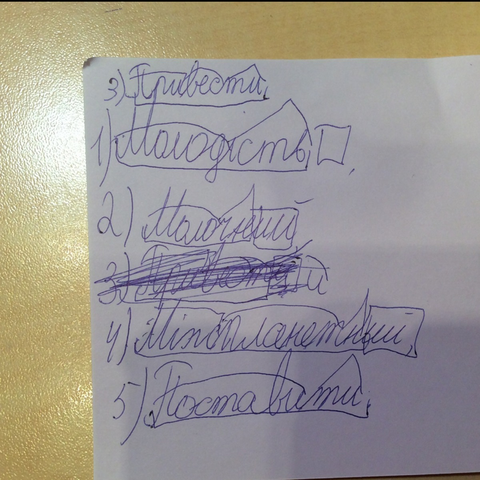 3) Привести,
1) Молодість,
2) Молочний
4) Міжпланетний,
5) Поставити,